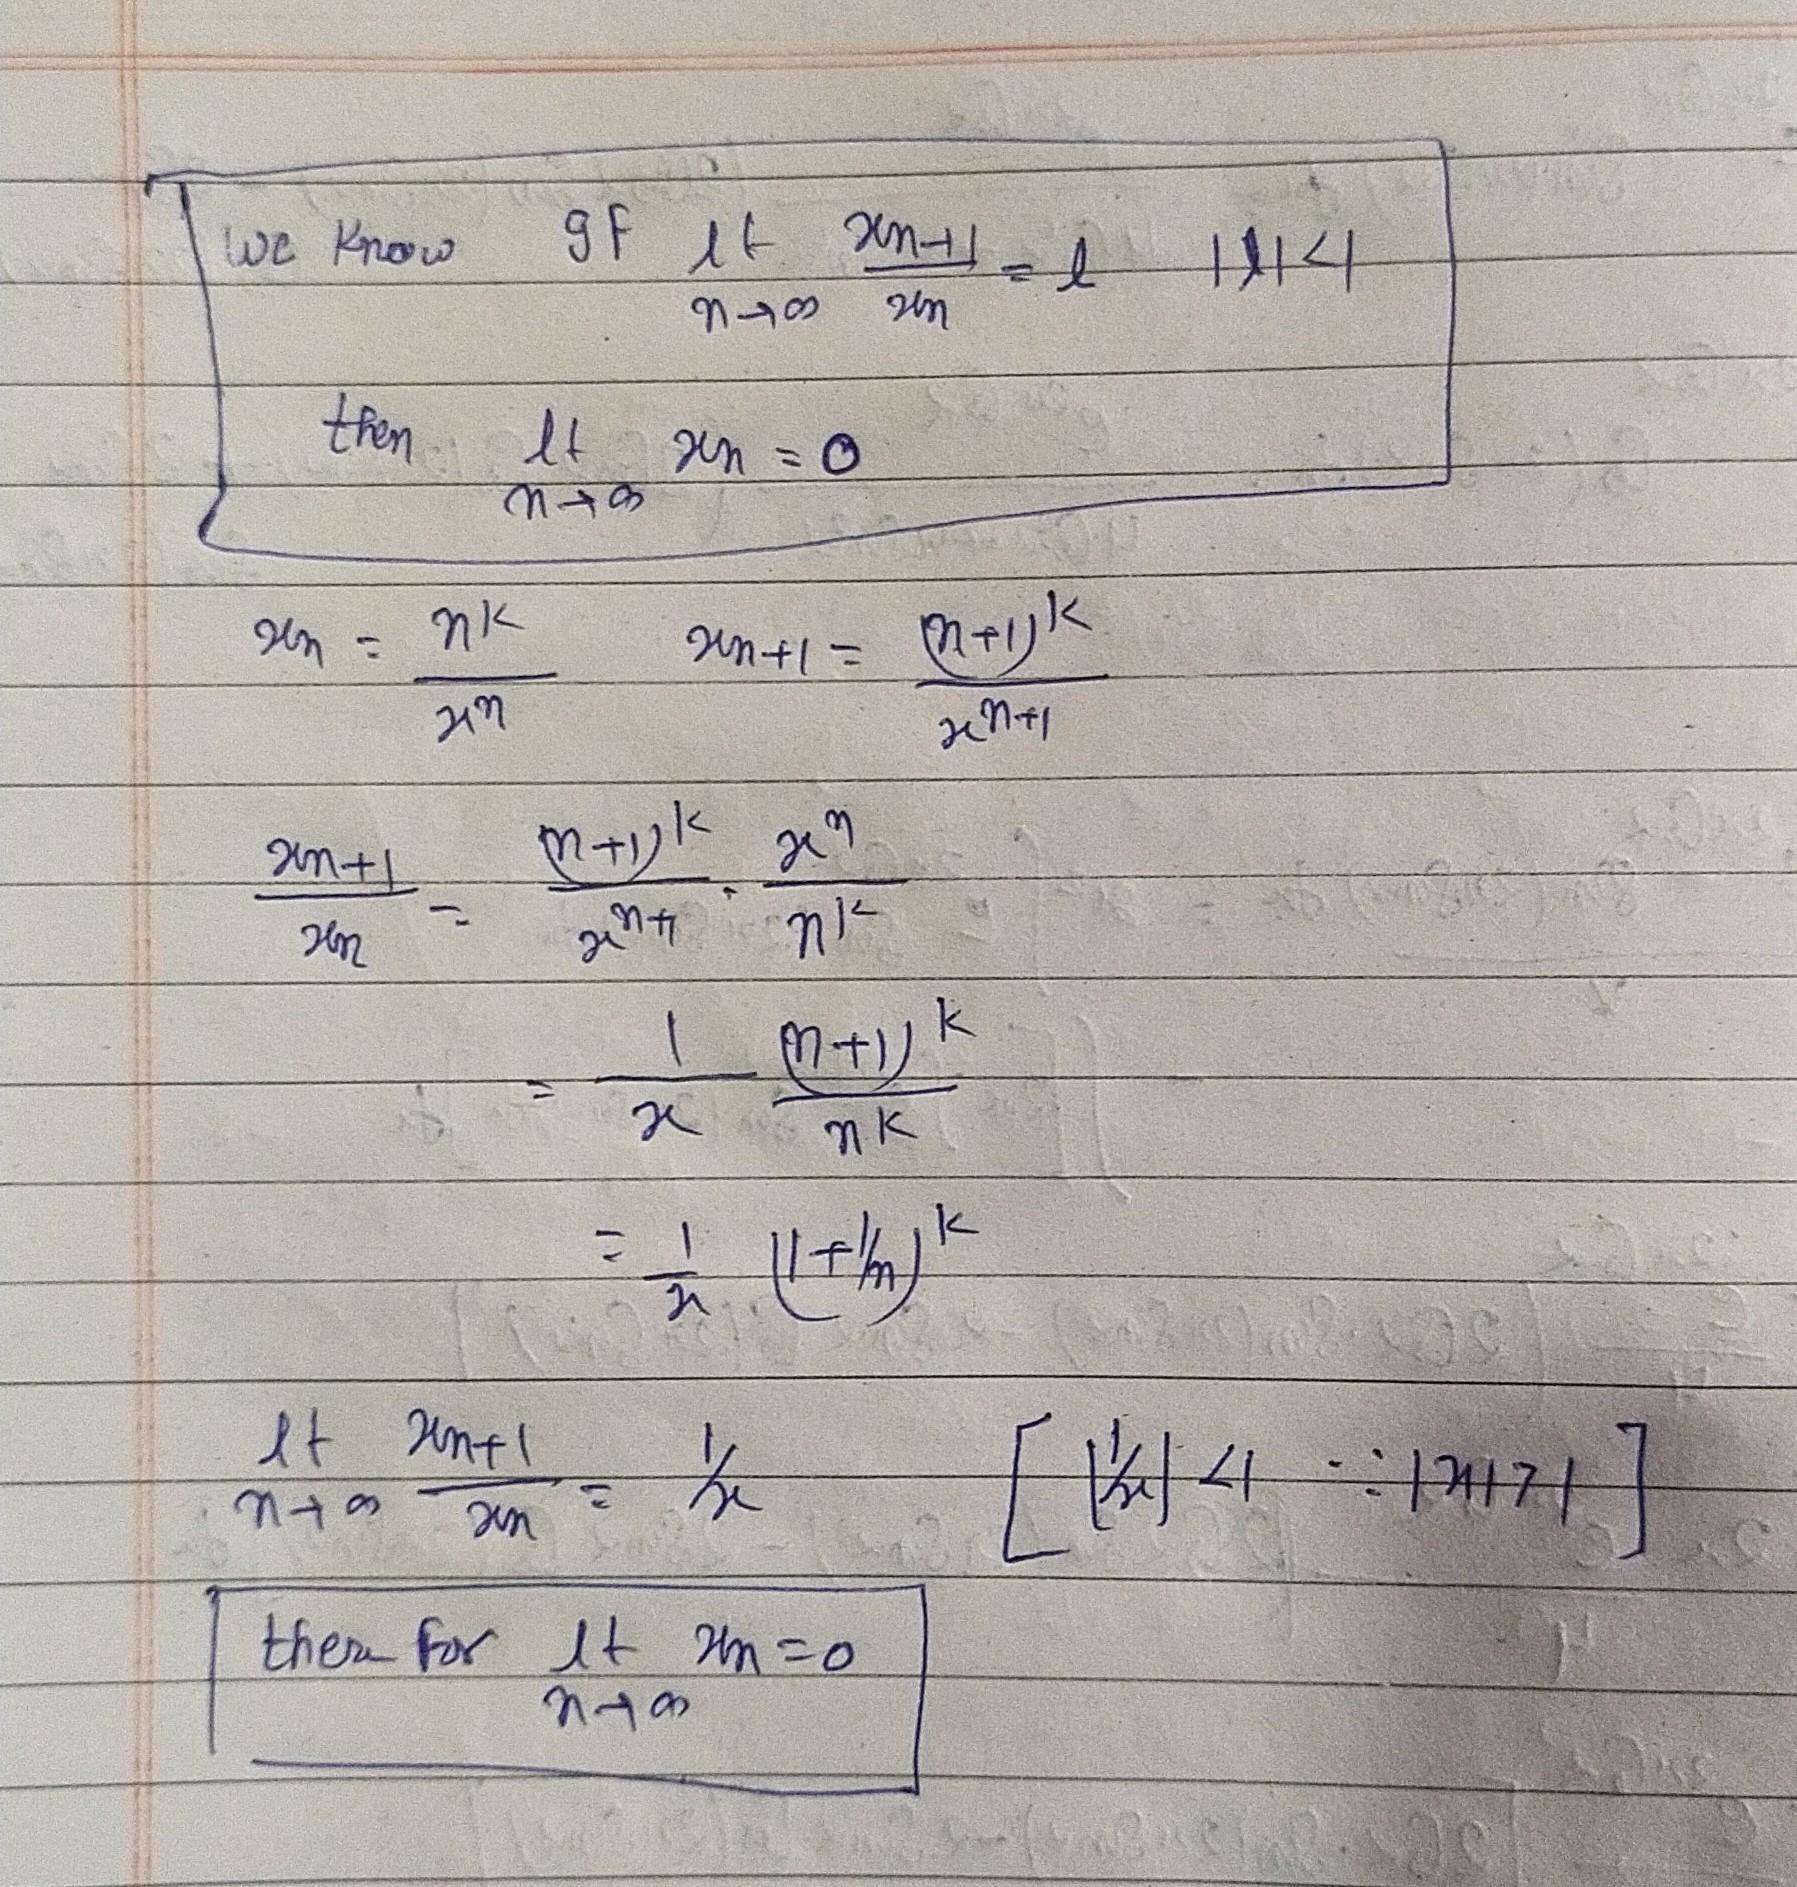 We know If lt n→∞ xn+1/xn = l |l|<1
then lt n→∞ xn = 0
xn = n^k/x^n xn+1 = (n+1)^k/x^n+1
xn+1/xn = (n+1)^k/x^n+1 · x^n/n^k
= 1/x (n+1)^k/n^k
= 1/x (1+1/n)^k
lt n→∞ xn+1/xn = 1/x [ |1/x| <1 ∵ |x|>1 ]
then for lt n→∞ xn = 0